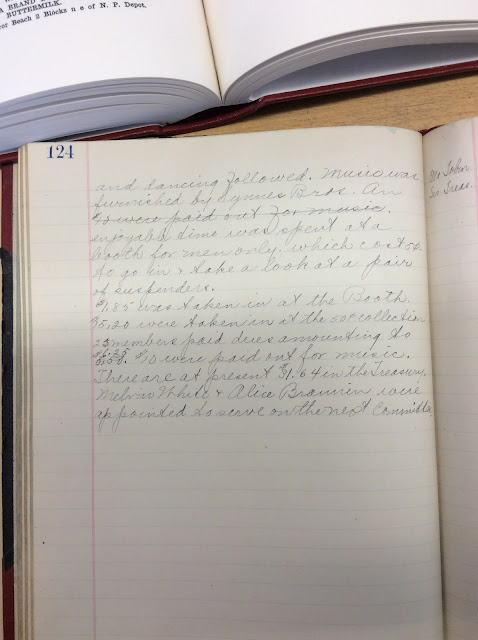 A BRAND
BUTTERMILK.
or Beach 2 Blocks n e of N. P. Depot,
124
and dancing followed. Music was
furnished by Symes Bros. An
$10 were paid out for music.
enjoyable time was spent at a
booth for men only, which cost 5¢
to go in & take a look at a pair
of suspenders.
$1.85 was taken in at the Booth.
$5.20 were taken in at the 50¢ collection
25 members paid dues amounting to
$10 were paid out for music.
There are at present $1.64 in the Treasury.
Melvin White & Alice Brannin were
appointed to serve on the next Committee
John
Sec Treas.